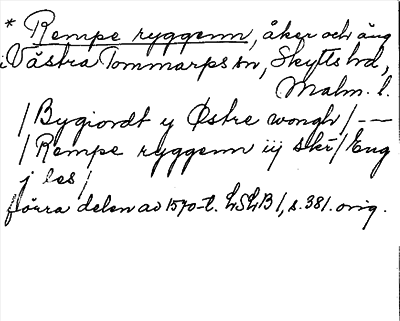 * Rempe ryggenn, åker och äng
i Västra Tommarps sn, Skytts hd,
Malm. l.
/Bygiordt y Østre wongh/ —
/Rempe ryggenn iij skr/ Eng
j les/
förra delen av 1570-t. LSLB1, s. 381. orig.